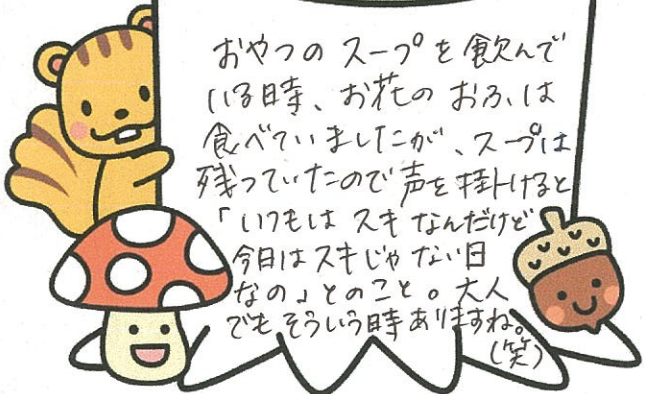 おやつの スープを飲んで
いる時、お花の おふ、は
食べていましたが、スープは
残っていたので声を掛けると
「いつもは スキ なんだけど
今日はスキじゃない日
なの」とのこと。大人
でもそういう時ありますね。
(笑)